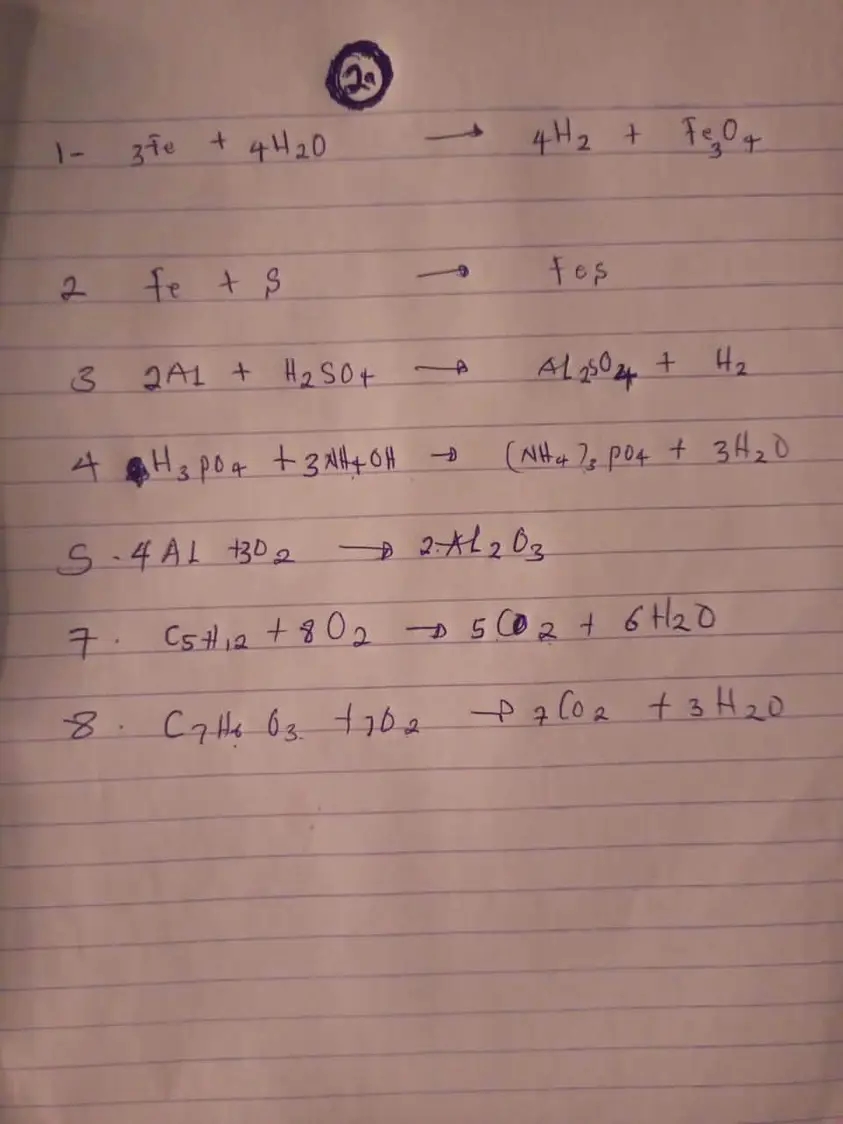 2a
1- 3Fe + 4H2O → 4H2 + Fe3O4
2 Fe + S → FeS
3 2Al + H2SO4 → Al2SO4 + H2
4 H3PO4 + 3NH4OH → (NH4)3PO4 + 3H2O
5. 4Al + 3O2 → 2Al2O3
7. C5H12 + 8O2 → 5CO2 + 6H2O
8. C7H6O3 + 7O2 → 7CO2 + 3H2O